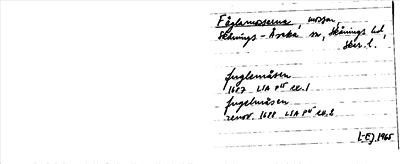 Fåglamossarna, mossar,
Skånings-Åsaka sn, Skånings hd,
Skar. l.
fuglemåsen
1687 LSA P15 ex. 1
fugelmåsen
renov. 1688 LSA P15 ex. 2
L-EJ. 1965